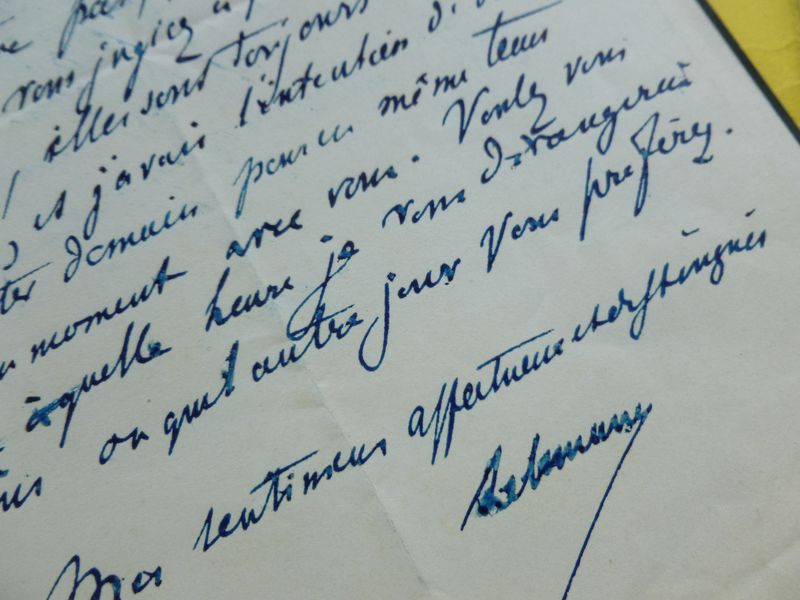 vous jugiez
elles sont toujours
et j'avais l'intention d
demain pour en même temps
moment avec vous. Voulez vous
à quelle heure je vous dérangerais
ou quel autre jour vous préférez.
Mes sentiments affectueux et distingués